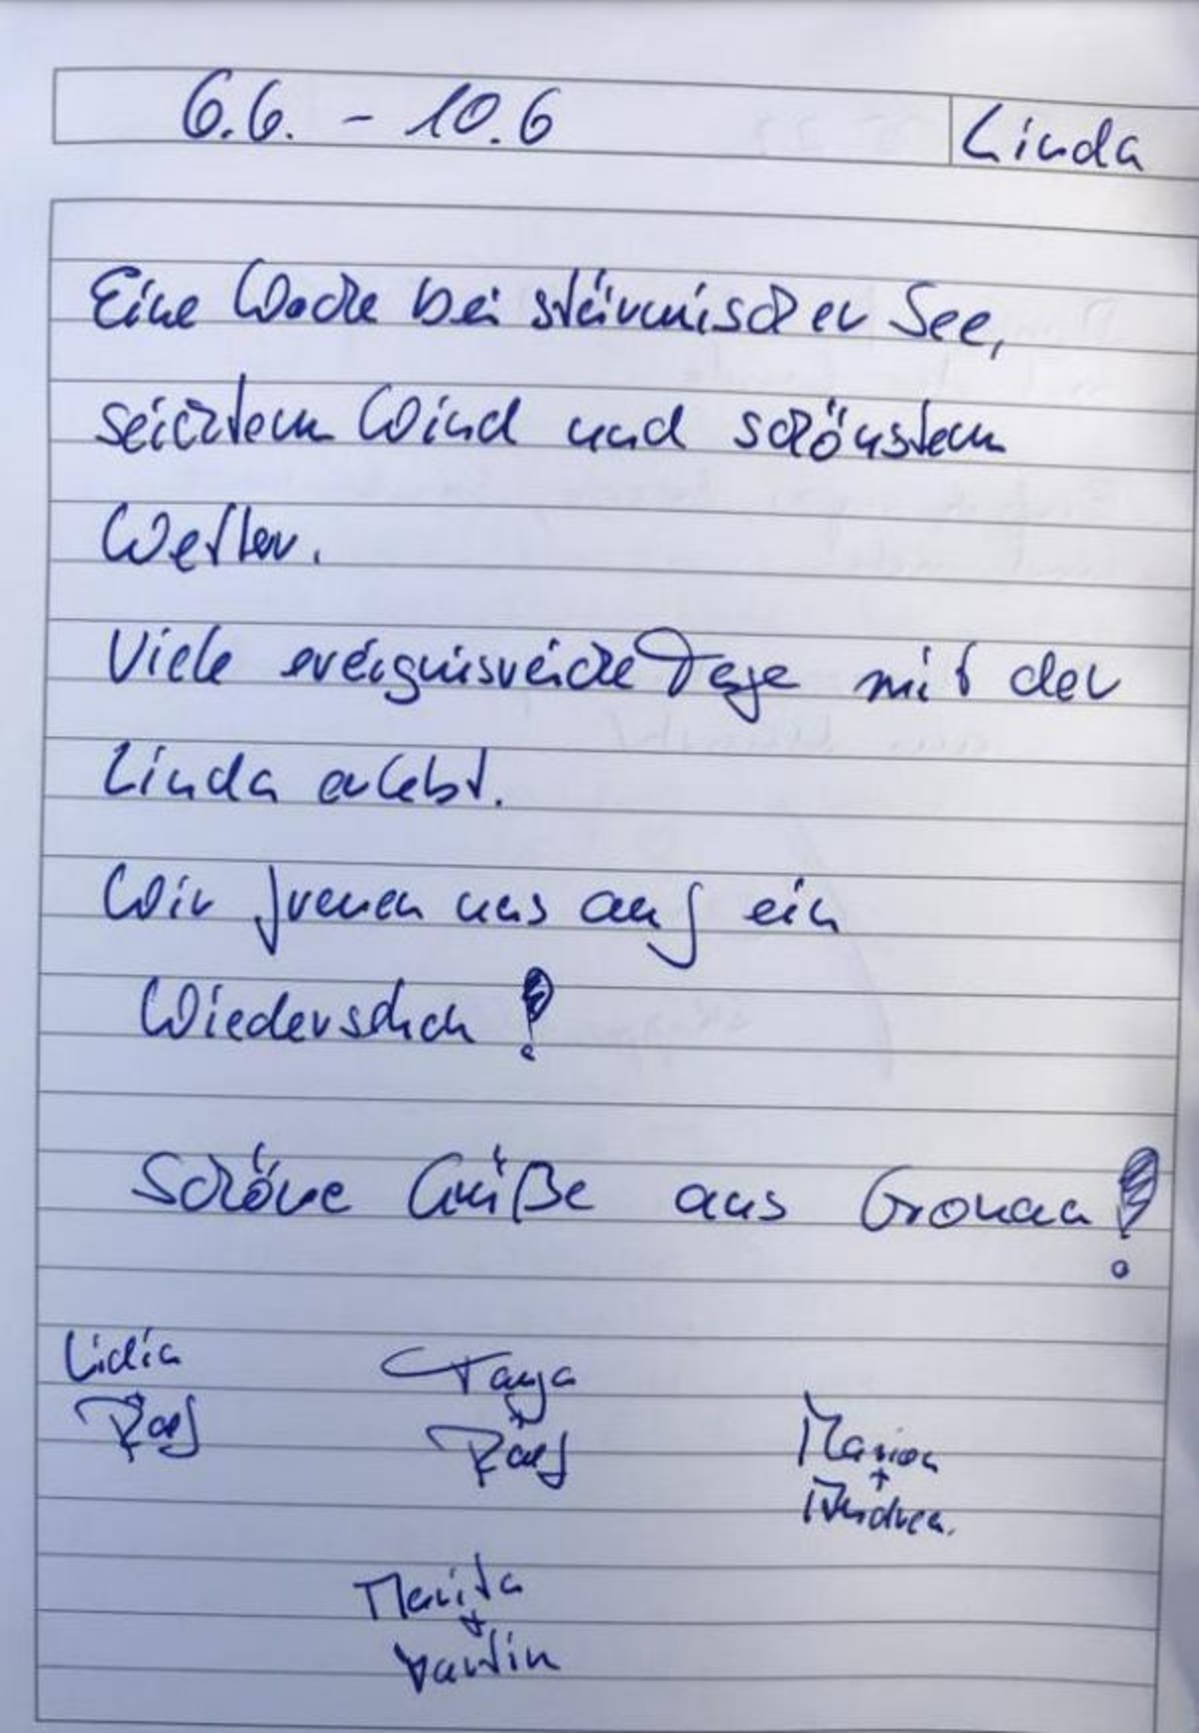 6.6. - 10.6 Linda
Eine Woche bei stürmischer See,
seichtem Wind und schönstem
Wetter.
Viele ereignisreiche Tage mit der
Linda erlebt.
Wir freuen uns auf ein
Wiedersehen!
Schöne Grüße aus Gronau!
Lidia
Ralf
Tanja
+
Ralf
Marion
+
Andrea.
Marita
+